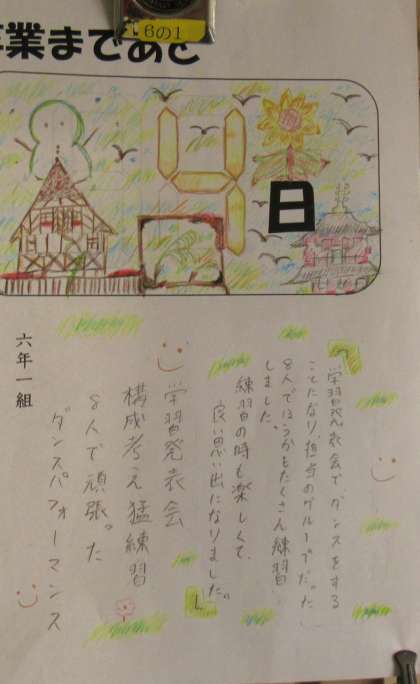 6の1
卒業まであと
84日
「学習発表会でダンスをする
ことになり、担当のグループだった
8人でほうかもたくさん練習
しました。
練習の時も楽しくて、
良い思い出になりました。」
学習発表会
構成考え猛練習
8人で頑張った
ダンスパフォーマンス
六年一組